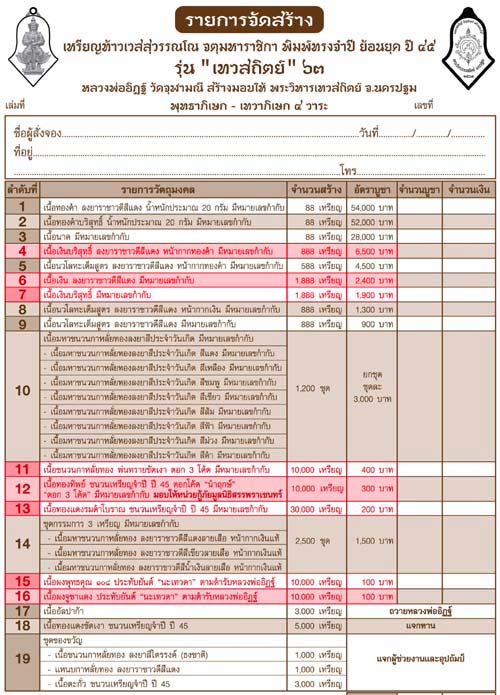 รายการจัดสร้าง
เหรียญท้าวเวสสุวรรณโณ จตุมหาราชิกา พิมพ์ทรงจำปี ย้อนยุค ปี ๔๕
รุ่น "เทวสถิตย์" ๖๓
หลวงพ่ออิฏฐ์ วัดจุฬามณี สร้างมอบให้ พระวิหารเทวสถิตย์ จ.นครปฐม
เล่มที่ พุทธาภิเษก - เทวาภิเษก ๔ วาระ เลขที่
ชื่อผู้สั่งจอง วันที่ / /
ที่อยู่
โทร
ลำดับที่ รายการวัตถุมงคล จำนวนสร้าง อัตราบูชา จำนวนบูชา จำนวนเงิน
1 เนื้อทองคำ ลงยาราชาวดีสีแดง น้ำหนักประมาณ 20 กรัม มีหมายเลขกำกับ 88 เหรียญ 54,000 บาท
2 เนื้อทองคำบริสุทธิ์ น้ำหนักประมาณ 20 กรัม มีหมายเลขกำกับ 88 เหรียญ 52,000 บาท
3 เนื้อนาค มีหมายเลขกำกับ 88 เหรียญ 28,000 บาท
4 เนื้อเงินบริสุทธิ์ ลงยาราชาวดีสีแดง หน้ากากทองคำ มีหมายเลขกำกับ 888 เหรียญ 6,500 บาท
5 เนื้อนวโลหะเต็มสูตร ลงยาราชาวดีสีแดง หน้ากากทองคำ มีหมายเลขกำกับ 588 เหรียญ 4,500 บาท
6 เนื้อเงิน ลงยาราชาวดีสีแดง มีหมายเลขกำกับ 1,888 เหรียญ 2,400 บาท
7 เนื้อเงินบริสุทธิ์ มีหมายเลขกำกับ 1,888 เหรียญ 1,900 บาท
8 เนื้อนวโลหะเต็มสูตร ลงยาราชาวดีสีแดง หน้ากากเงิน มีหมายเลขกำกับ 888 เหรียญ 1,300 บาท
9 เนื้อนวโลหะเต็มสูตร ลงยาราชาวดีสีแดง มีหมายเลขกำกับ 888 เหรียญ 900 บาท
10 เนื้อมหาชนวนกาหลั่ยทองลงยาสีประจำวันเกิด มีหมายเลขกำกับ 1,200 ชุด ยกชุด ชุดละ 3,000 บาท
- เนื้อมหาชนวนกาหลั่ยทองลงยาสีประจำวันเกิด สีแดง มีหมายเลขกำกับ
- เนื้อมหาชนวนกาหลั่ยทองลงยาสีประจำวันเกิด สีเหลือง มีหมายเลขกำกับ
- เนื้อมหาชนวนกาหลั่ยทองลงยาสีประจำวันเกิด สีชมพู มีหมายเลขกำกับ
- เนื้อมหาชนวนกาหลั่ยทองลงยาสีประจำวันเกิด สีเขียว มีหมายเลขกำกับ
- เนื้อมหาชนวนกาหลั่ยทองลงยาสีประจำวันเกิด สีส้ม มีหมายเลขกำกับ
- เนื้อมหาชนวนกาหลั่ยทองลงยาสีประจำวันเกิด สีฟ้า มีหมายเลขกำกับ
- เนื้อมหาชนวนกาหลั่ยทองลงยาสีประจำวันเกิด สีม่วง มีหมายเลขกำกับ
- เนื้อมหาชนวนกาหลั่ยทองลงยาสีประจำวันเกิด สีดำ มีหมายเลขกำกับ
11 เนื้อชนวนกาหลั่ยทอง พ่นทรายขัดเงา ตอก 3 โค้ด มีหมายเลขกำกับ 10,000 เหรียญ 400 บาท
12 เนื้อทองทิพย์ ชนวนเหรียญจำปี ปี 45 ตอกโค้ด "นำฤกษ์" 10,000 เหรียญ 300 บาท
"ตอก 3 โค้ด" มีหมายเลขกำกับ มอบให้หน่วยกู้ภัยมูลนิธิสรรพราเชนทร์
13 เนื้อทองแดงรมดำโบราณ ชนวนเหรียญจำปี ปี 45 มีหมายเลขกำกับ 30,000 เหรียญ 200 บาท
14 ชุดกรรมการ 3 เหรียญ มีหมายเลขกำกับ 2,500 ชุด 1,500 บาท
- เนื้อมหาชนวนกาหลั่ยทอง ลงยาราชาวดีสีแดงลายเสือ หน้ากากเงินแท้
- เนื้อมหาชนวนกาหลั่ยทอง ลงยาราชาวดีสีเขียวลายเสือ หน้ากากเงินแท้
- เนื้อมหาชนวนกาหลั่ยทอง ลงยาราชาวดีสีน้ำเงินลายเสือ หน้ากากเงินแท้
15 เนื้อผงพุทธคุณ ๑๐๘ ประทับยันต์ "นะเทวดา" ตามตำรับหลวงพ่ออิฏฐ์ 10,000 เหรียญ 100 บาท
16 เนื้อผงจูซาแดง ประทับยันต์ "นะเทวดา" ตามตำรับหลวงพ่ออิฏฐ์ 10,000 เหรียญ 100 บาท
17 เนื้ออัลปาก้า 3,000 เหรียญ ถวายหลวงพ่ออิฏฐ์
18 เนื้อทองแดงขัดเงา ชนวนเหรียญจำปี ปี 45 5,000 เหรียญ แจกทาน
19 ชุดของขวัญ แจกผู้ช่วยงานและอุปถัมป์
- เนื้อชนวนกาหลั่ยทอง ลงยาสีไตรรงค์ (ธงชาติ) 1,000 เหรียญ
- แหนบกาหลั่ยทอง ลงยาราชาวดีสีแดง 1,000 เหรียญ
- เนื้อตะกั่ว ชนวนเหรียญจำปี ปี 45 3,000 เหรียญ